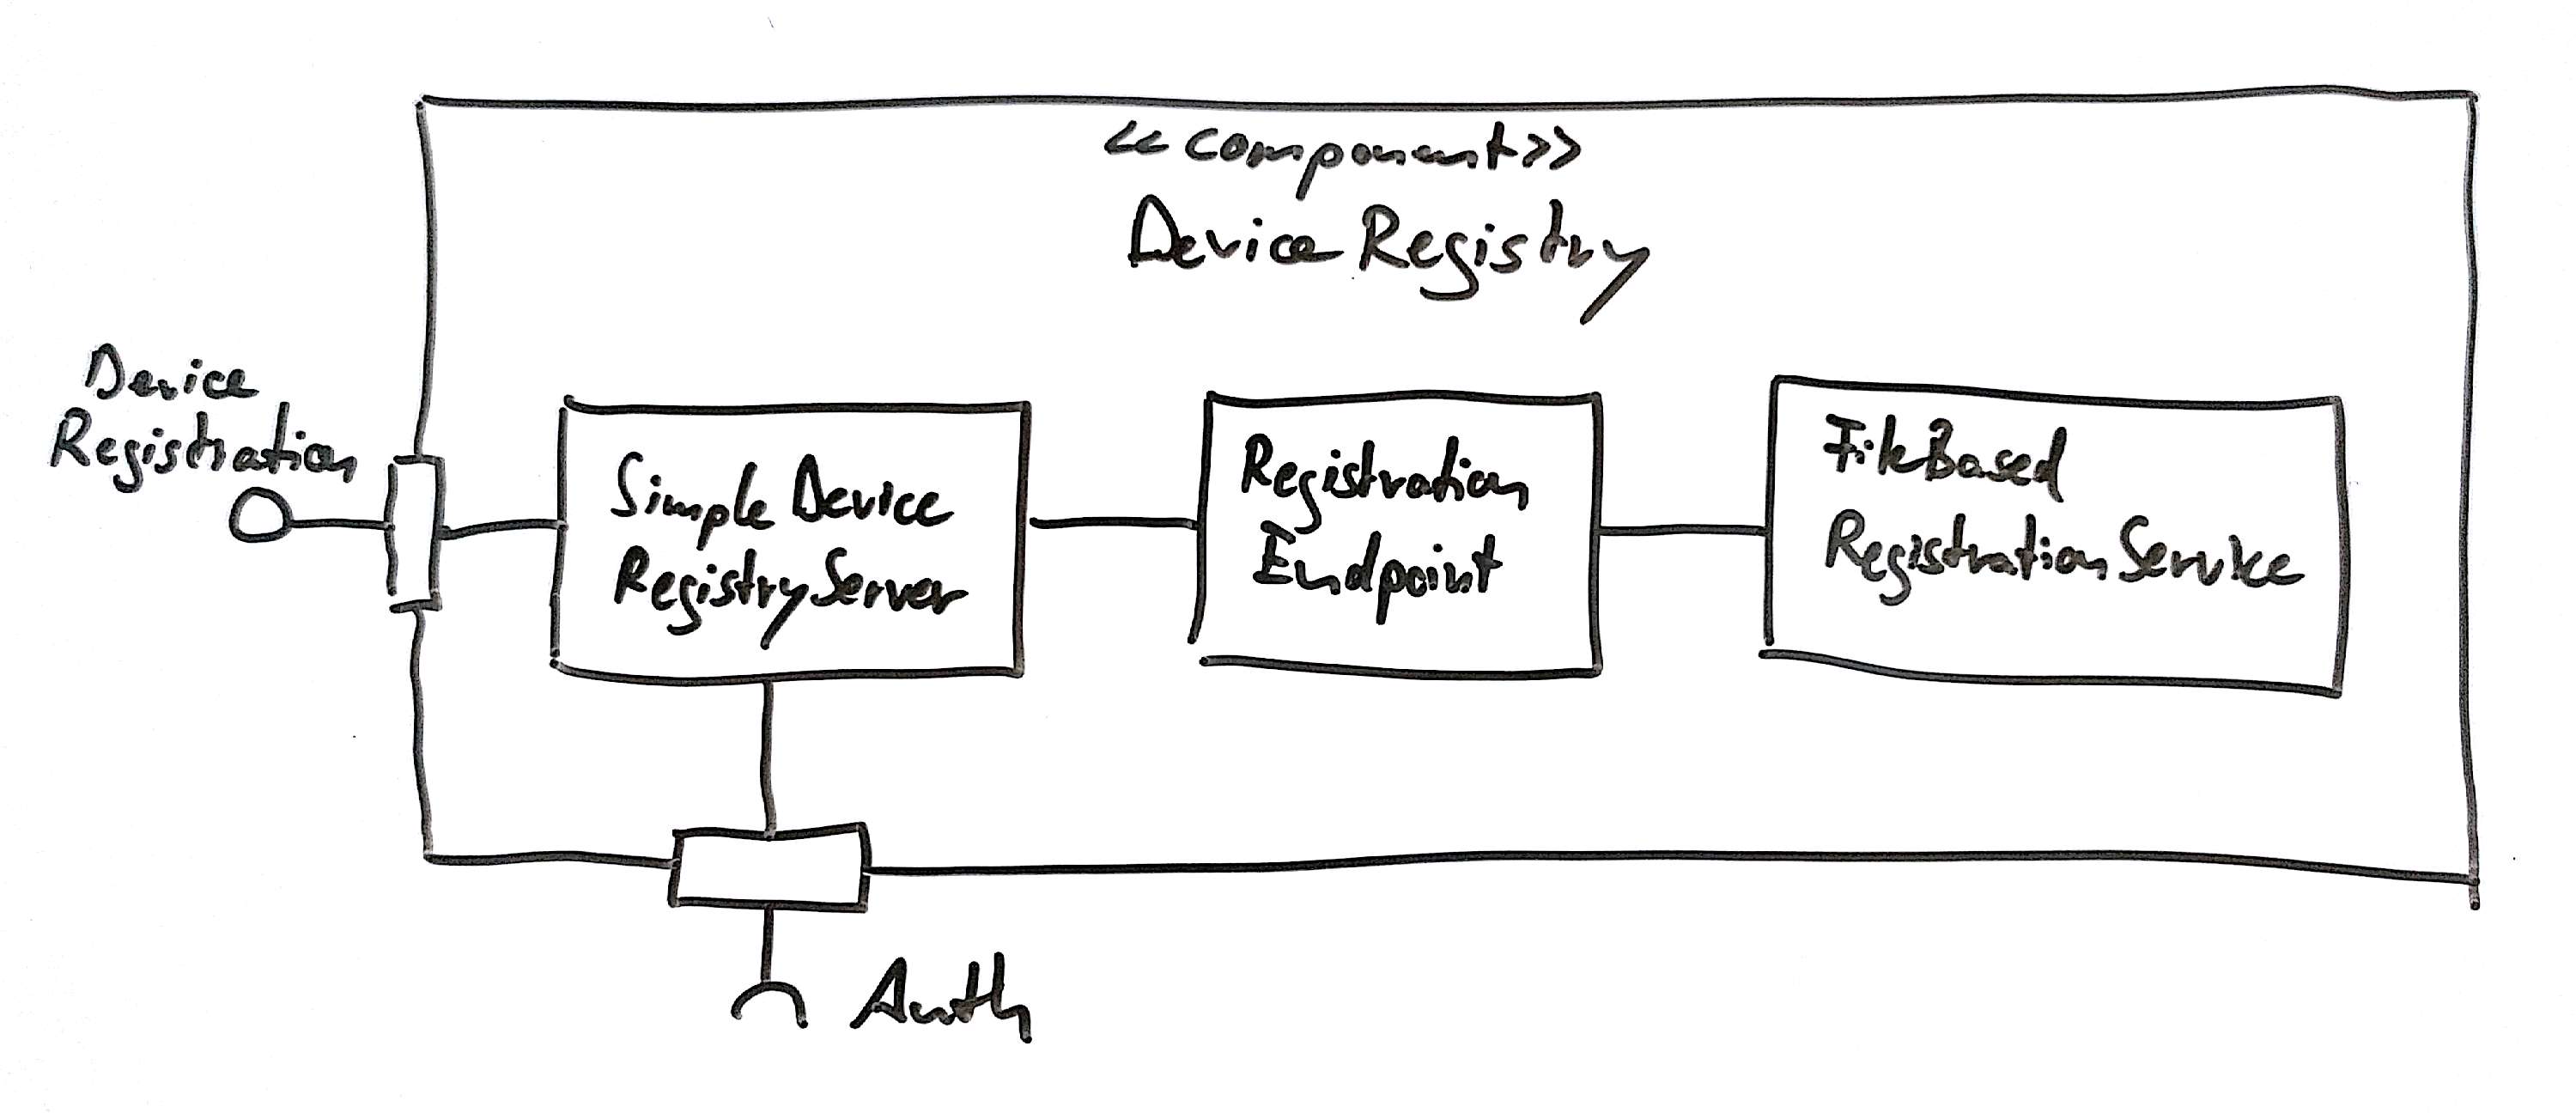 <<component>>
Device Registry
Device
Registration
Simple Device
Registry Server
Registration
Endpoint
FileBased
Registration Service
Auth